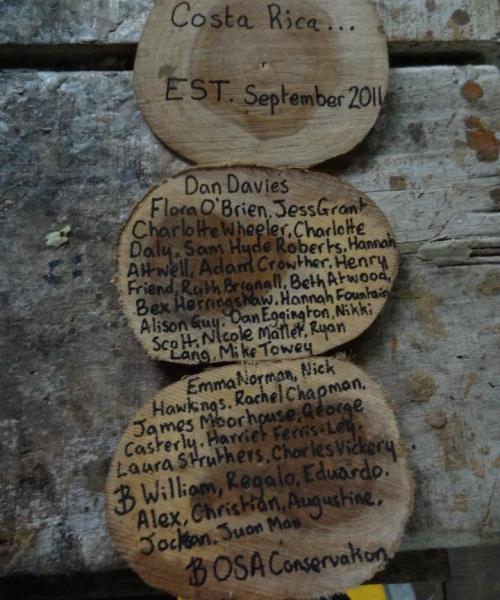 Costa Rica...
EST. September 2011
Dan Davies
Flora O'Brien, Jess Grant
Charlotte Wheeler, Charlotte
Daly, Sam Hyde Roberts, Hannah
Attwell, Adam Crowther, Henry
Friend, Ruth Brignall, Beth Atwood,
Bex Herringshaw, Hannah Fountain
Alison Guy, Dan Eggington, Nikki
Scott, Nicole Maller, Ryan
Lang, Mike Towey
Emma Norman, Nick
Hawkings, Rachel Chapman,
James Moorhouse, George
Casterly, Harriet Ferris-Ley,
Laura Struthers, Charles Vickery
B William, Regalo, Eduardo.
Alex, Christian, Augustine,
Juan Man
BOSA Conservation